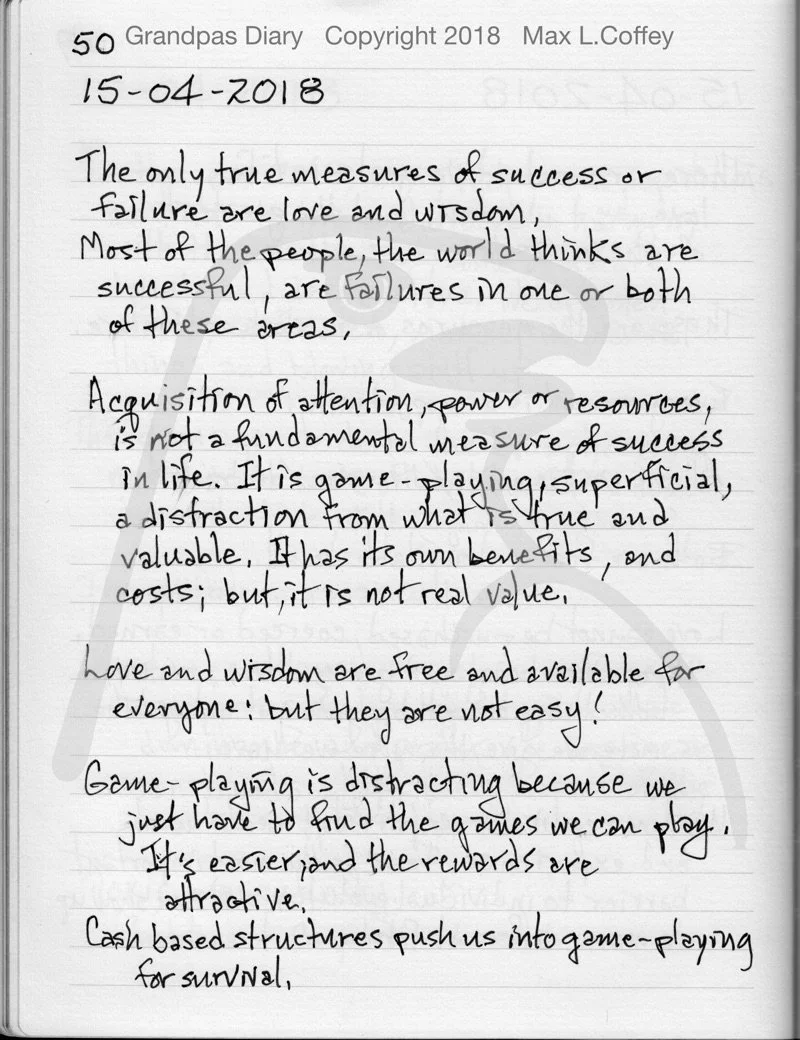 50 Grandpas Diary Copyright 2018 Max L.Coffey
15-04-2018
The only true measures of success or
failure are love and wisdom,
Most of the people, the world thinks are
successful, are failures in one or both
of these areas,
Acquisition of attention, power or resources,
is not a fundamental measure of success
in life. It is game-playing, superficial,
a distraction from what is true and
valuable. It has its own benefits, and
costs; but, it is not real value.
Love and wisdom are free and available for
everyone: but they are not easy!
Game-playing is distracting because we
just have to find the games we can play.
It's easier, and the rewards are
attractive.
Cash based structures push us into game-playing
for survival,